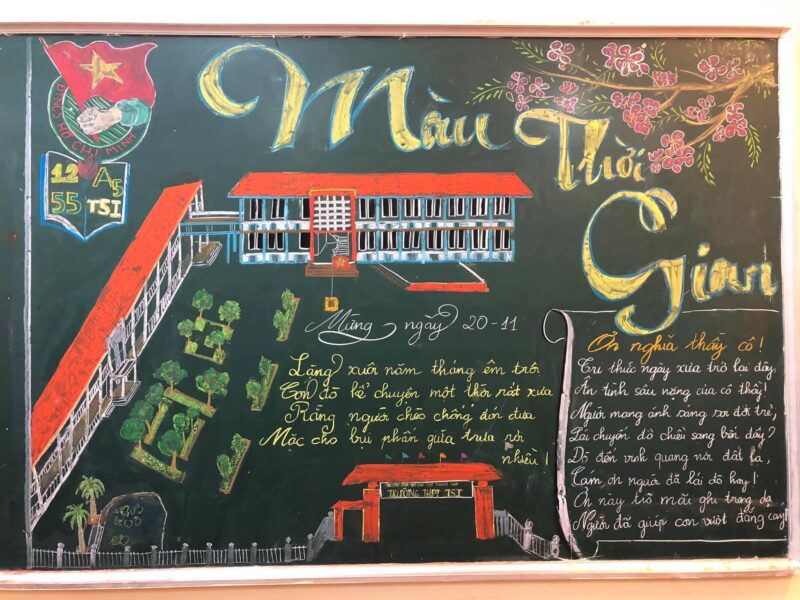 Màu Thời Gian
ĐTNCS HỒ CHÍ MINH
12 A5
55 TSI
Mừng ngày 20-11
Lặng xuôi năm tháng êm trôi
Con đò kể chuyện một thời rất xưa
Rằng người chèo chống đón đưa
Mặc cho bụi phấn giữa trưa rơi
nhiều!
Ơn nghĩa thầy cô!
Tri thức ngày xưa trở lại đây,
Ân tình sâu nặng của cô thầy!
Người mang ánh sáng soi đời trẻ,
Lái chuyến đò chiều sang bến đây?
Đò đến vinh quang nơi đất lạ,
Cám ơn người đã lái đò hay!
Ơn này trò mãi ghi trong dạ
Người đã giúp con vượt đắng cay!
TRƯỜNG THPT TSI